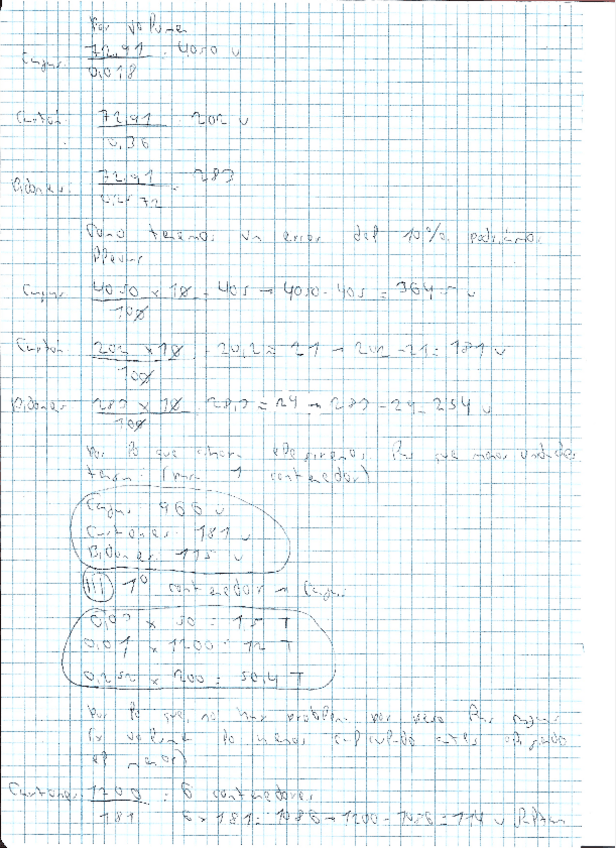 Por volumen
Cajas: 72,91 / 0,018 = 4050 u
Cartón: 72,91 / 0,36 = 202 u
Bidones: 72,91 / = 283
Como tenemos un error del 10% podríamos
llevar
Cajas 4050 x 10 / 100 = 405 → 4050 - 405 = 3645 u
Cartón 202 x 10 / 100 = 20,2 = 21 → 202 - 21 = 181 u
Bidones 283 x 10 / 100 = 28,3 = 29 → 283 - 29 = 254 u
Por lo que ahora elegiremos las que menos unidades
tengan (para 1 contenedor)
Cajas 966 u
Cartones: 181 u
Bidones: 115 u
III 1º contenedor → Cajas
0,03 x 50 = 15 T
0,01 x 1200 = 12 T
0,252 x 200 = 50,4 T
Por lo que no hay problema por peso
volumen lo hemos calculado antes
el menor)
Cartones 1200 / 181 = 6 contenedores
6 x 181 = 1086 → 1200 - 1086 = 114 u